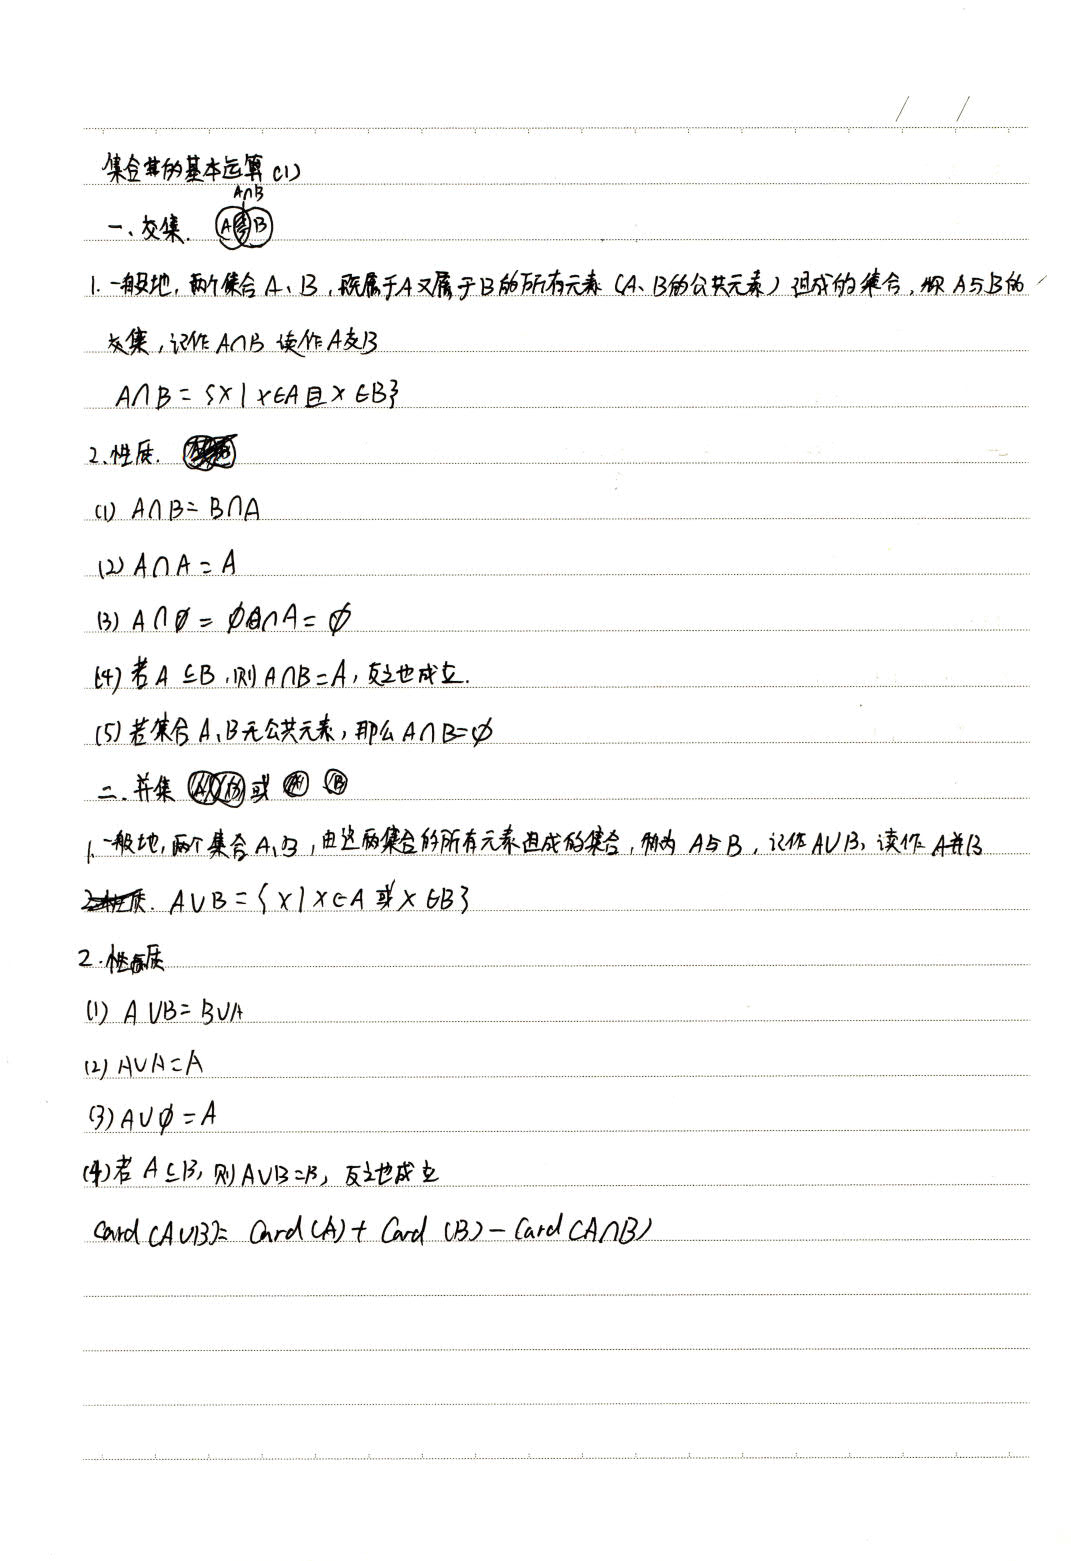 集合的基本运算(1)
A∩B
一、交集. A B
1.一般地,两个集合A、B,既属于A又属于B的所有元素(A、B的公共元素)组成的集合,称A与B的
交集,记作A∩B 读作A交B
A∩B={x|x∈A且x∈B}
2.性质.
(1) A∩B=B∩A
(2) A∩A=A
(3) A∩∅=∅∩A=∅
(4) 若A⊆B,则A∩B=A,反之也成立.
(5) 若集合A、B无公共元素,那么A∩B=∅
二、并集 A B 或 A B
1.一般地,两个集合A、B,由这两集合的所有元素组成的集合,称为A与B,记作A∪B,读作A并B
A∪B={x|x∈A或x∈B}
2.性质
(1) A∪B=B∪A
(2) A∪A=A
(3) A∪∅=A
(4)若A⊆B,则A∪B=B,反之也成立
Card(A∪B)=Card(A)+Card(B)-Card(A∩B)